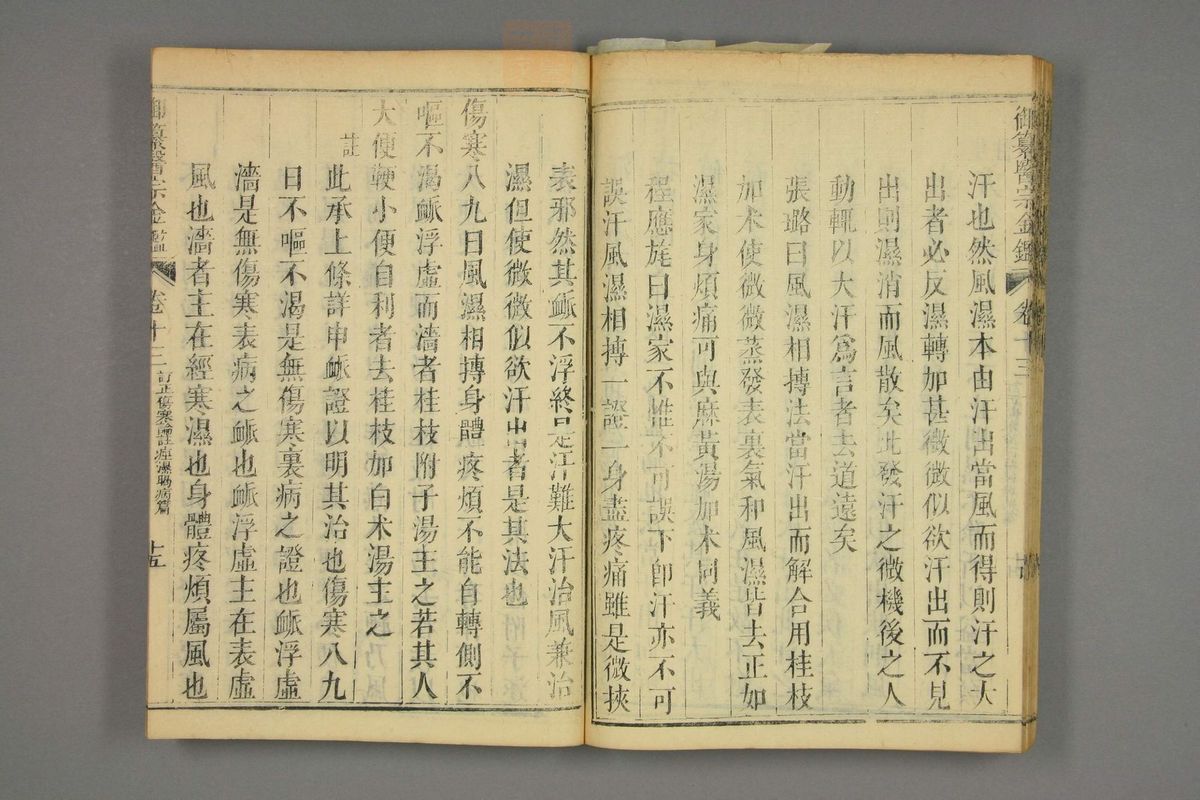 御纂醫宗金鑑 卷十三
汗也然風濕本由汗出當風而得則汗之大
出者必反濕轉加甚微微似欲汗出而不見
出則濕消而風散矣此發汗之微機後之人
動輒以大汗為言者去道遠矣
張璐曰風濕相摶法當汗出而解合用桂枝
加朮使微微蒸發表裏氣和風濕皆去正如
濕家身煩痛可與麻黃湯加朮同義
程應旄曰濕家不惟不可誤下卽汗亦不可
誤汗風濕相摶一證一身盡疼痛雖是微挾
表邪然其脈不浮終是汗難大汗治風兼治
濕但使微微似欲汗出者是其法也
傷寒八九日風濕相摶身體疼煩不能自轉側不
嘔不渴脈浮虛而濇者桂枝附子湯主之若其人
大便鞕小便自利者去桂枝加白朮湯主之
註
此承上條詳申脈證以明其治也傷寒八九
日不嘔不渴是無傷寒裏病之證也脈浮虛
濇是無傷寒表病之脈也脈浮虛主在表虛
風也濇者主在經寒濕也身體疼煩屬風也
御纂醫宗金鑑 卷十三 訂正傷寒論註痙濕暍病篇 十五